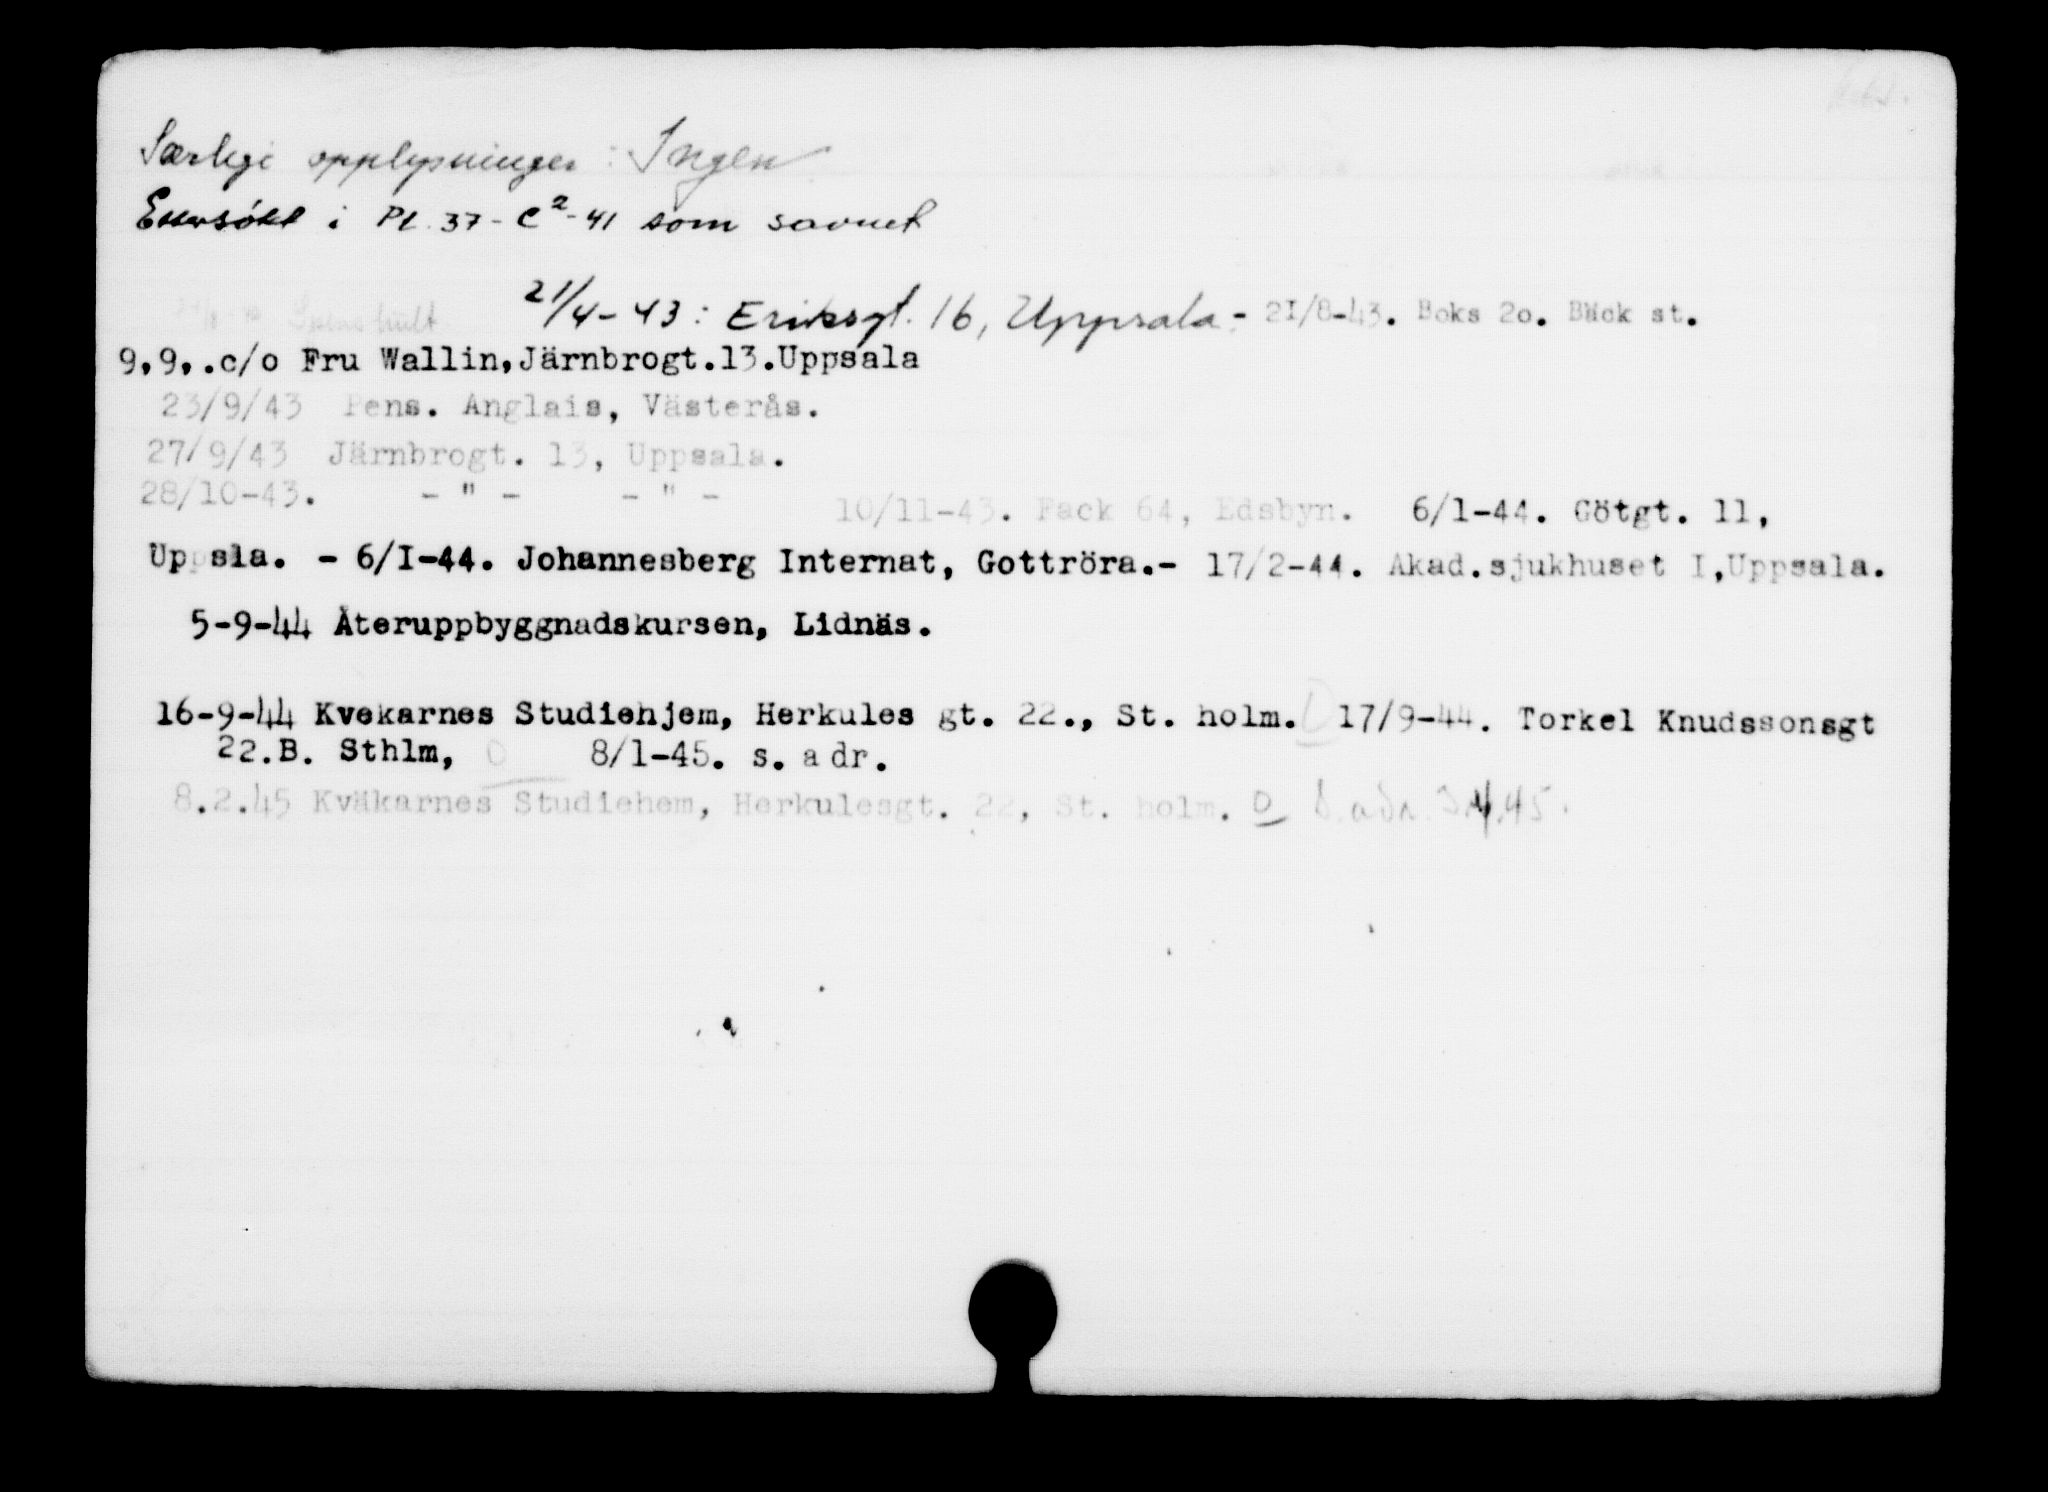 Særlige opplysninger : Ingen
Ettersökt i Pt. 37 - C²- 41 som savnet
21/4-43: Eriksgt. 16, Uppsala.- 2I/8-43. Boks 2o. Bäck st.
9.9..c/o Fru Wallin,Järnbrogt.13.Uppsala
23/9/43 Pens. Anglais, Västerås.
27/9/43 Järnbrogt. 13, Uppsala.
28/10-43. - " - - " - 10/11-43. Fack 64, Edsbyn. 6/1-44. Götgt. 11,
Uppsla. - 6/I-44. Johannesberg Internat, Gottröra.- 17/2-44. Akad.sjukhuset I,Uppsala.
5-9-44 Återuppbyggnadskursen, Lidnäs.
16-9-44 Kvekarnes Studiehjem, Herkules gt. 22., St. holm. O 17/9-44. Torkel Knudssonsgt
22.B. Sthlm, O 8/1-45. s. adr.
8.2.45 Kväkarnes Studiehem, Herkulesgt. 22, St. holm. O S.adr. 3.4.45.